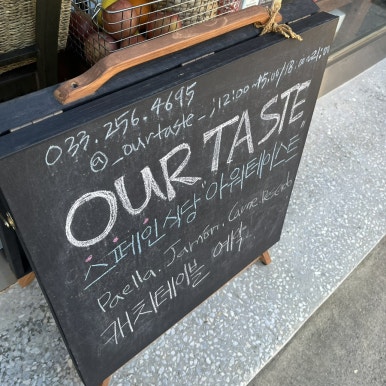 033.256.4695
@_ourtaste_; 12:00~15:00/18:00~21:00
OUR TASTE
스페인 식당 "아워테이스트"
Paella. Jamón. Carne Asada
캐치테이블 예약